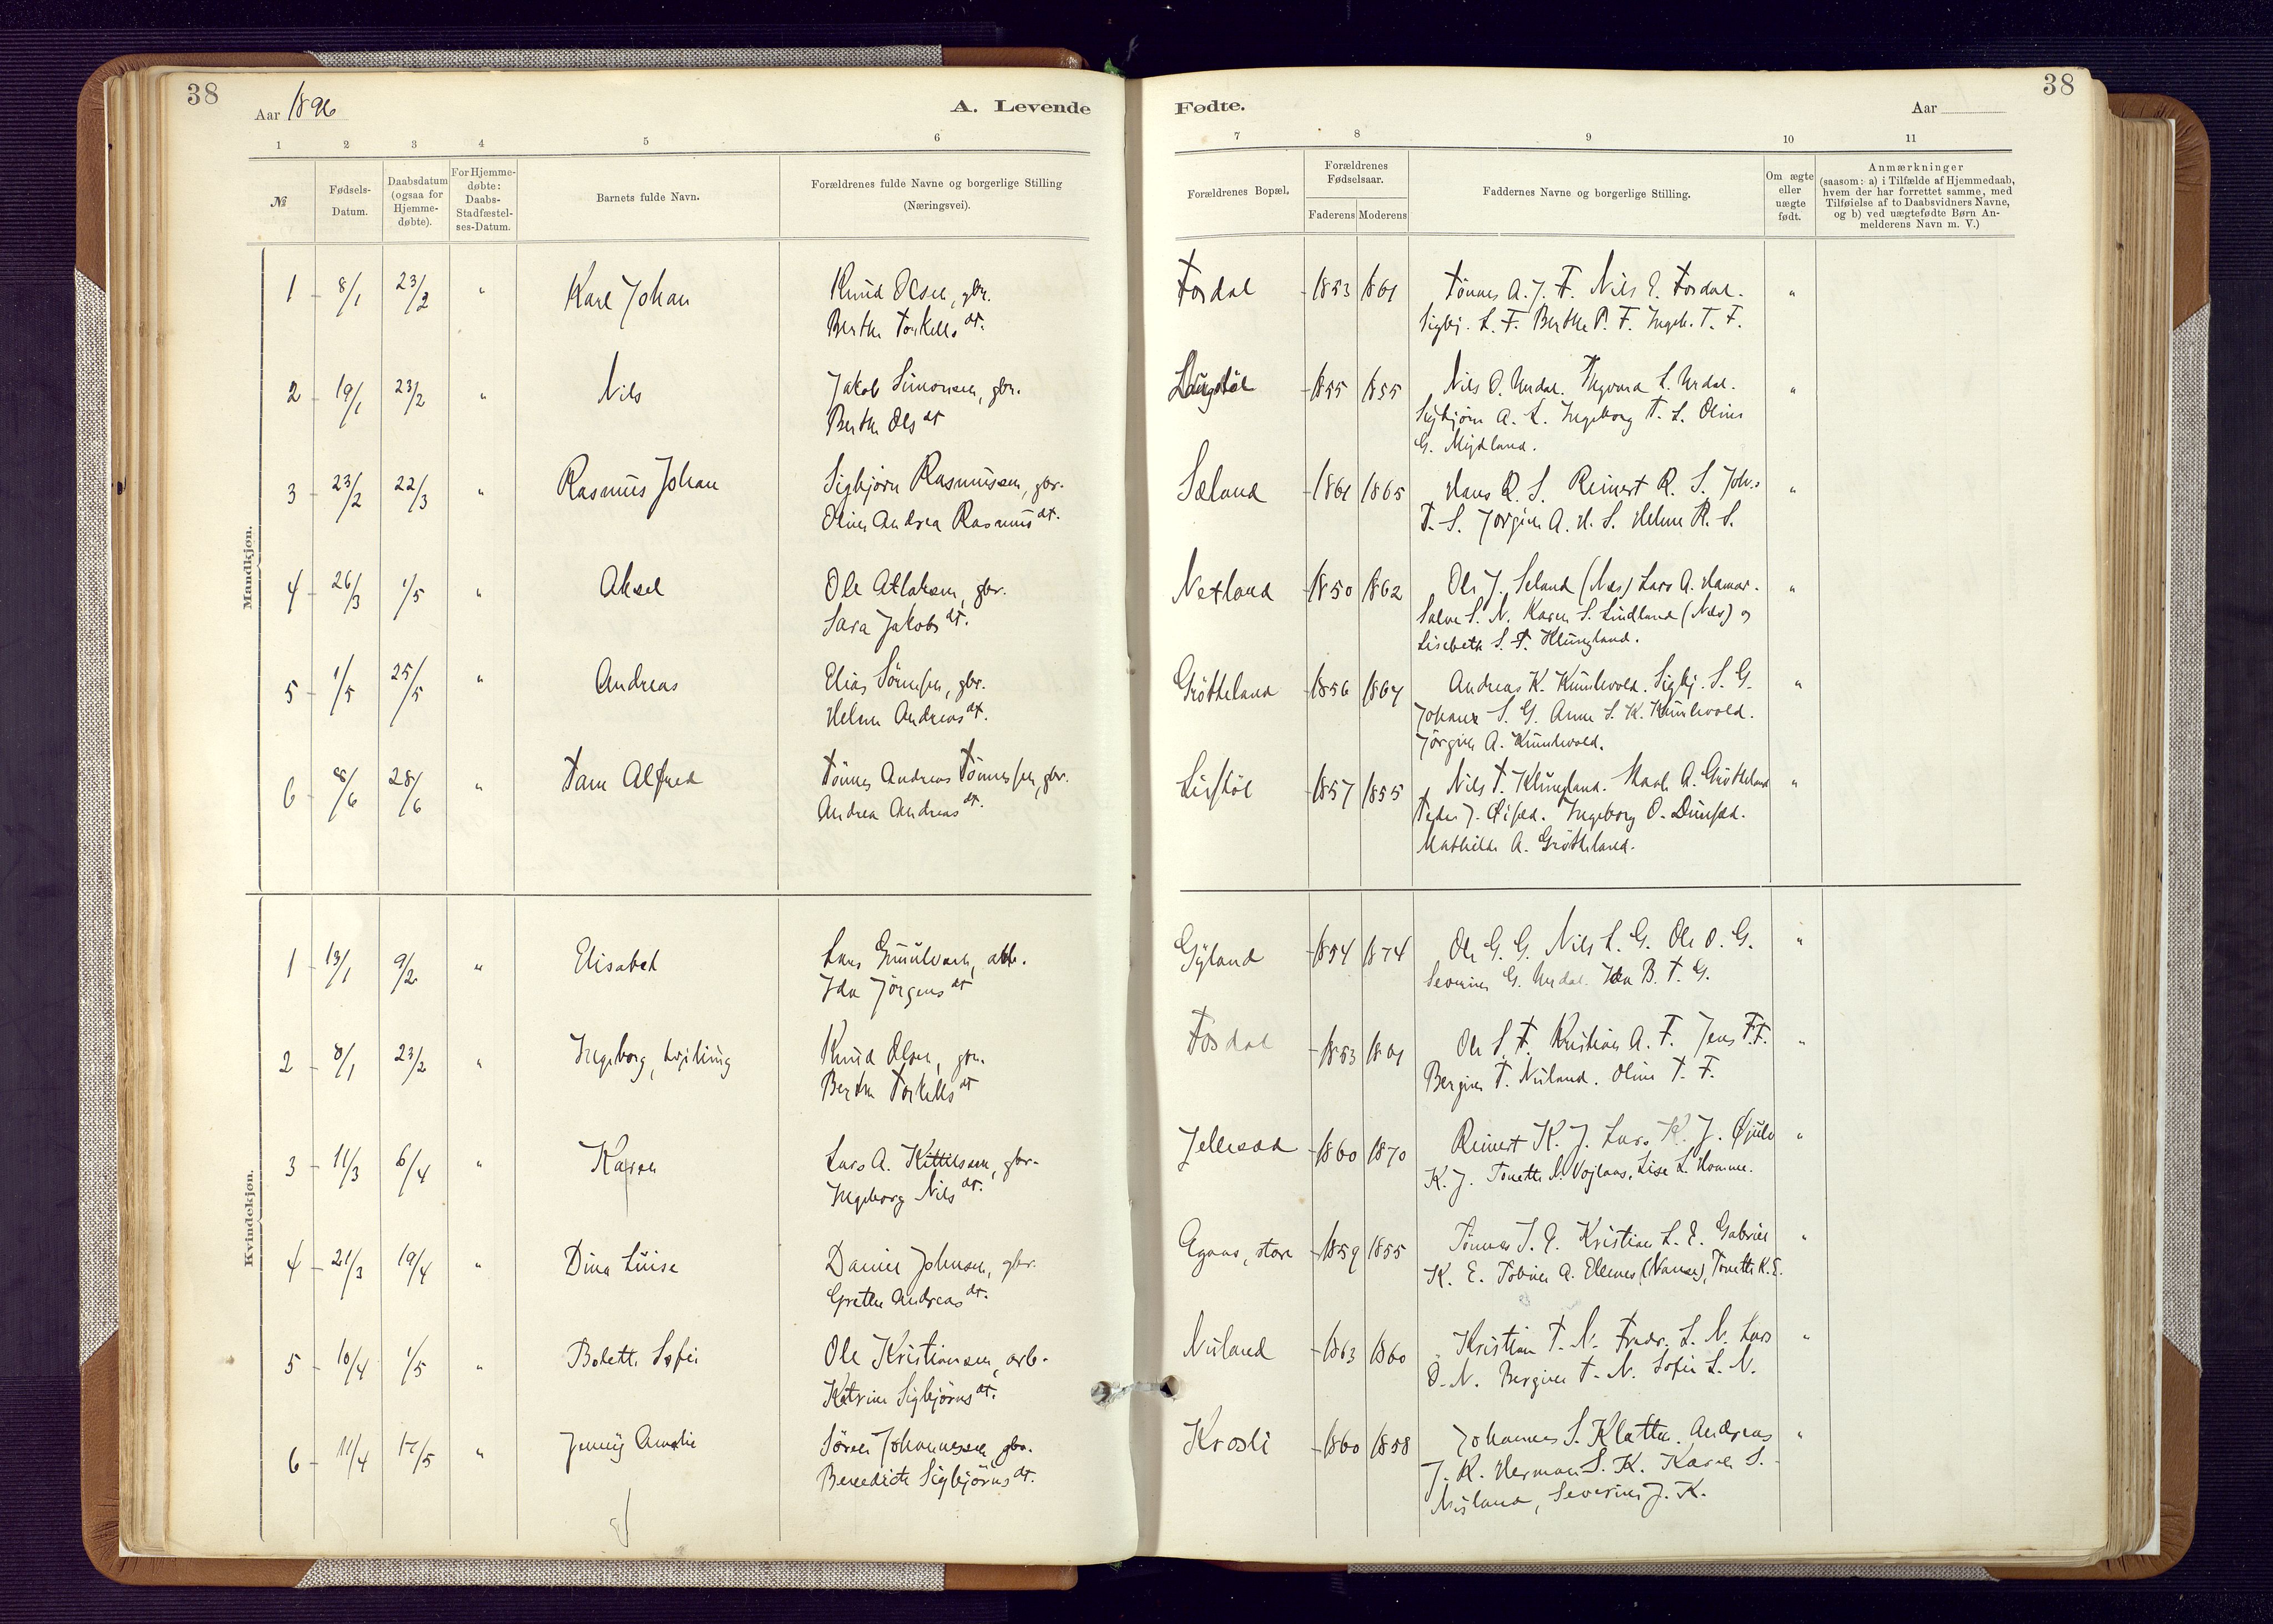 38
Aar 1896
A. Levende
1 2 3 4 5 6
№
Fødsels-
Datum.
Daabsdatum
(ogsaa for
Hjemme-
døbte).
For Hjemme-
døbte:
Daabs-
Stadfæstel-
ses-Datum.
Barnets fulde Navn.
Forældrenes fulde Navne og borgerlige Stilling
(Næringsvei).
Mandkjøn.
1 8/1 23/2 " Karl Johan Knud Olsen, gbr.
Berthe Torkells dt.
2 19/1 23/2 " Nils Jakob Simonsen, gbr.
Berthe Ols dt
3 23/2 22/3 " Rasmus Johan Sigbjørn Rasmussen, gbr.
Oline Andrea Rasmus dt.
4 26/3 1/5 " Aksel Ole Atlaksen, gbr.
Sara Jakobs dt.
5 1/5 25/5 " Andreas Elias Sörensen, gbr.
Helene Andreas dt.
6 8/6 28/6 " Tam Alfred Tönnes Andreas Tönnessen, gbr.
Andrea Andreas dt.
Kvindekjøn.
1 13/1 9/2 " Elisabet Lars Gunulvsen, arb.
Ida Jörgens dt
2 8/1 23/2 " Ingeborg, tvilling Knud Olsen, gbr.
Berthe Torkells dt
3 11/3 6/4 " Karen Lars A. Kittilsen, gbr.
Ingeborg Nils dt.
4 21/3 19/4 " Dina Luise Daniel Johnsen, gbr.
Grethe Andreas dt.
5 10/4 1/5 " Bolette Sofie Ole Kristiansen, arb.
Katrine Sigbjörns dt.
6 11/4 17/5 " Jenny Amalie Sören Johannessen, gbr.
Benedicte Sigbjörns dt.
38
Fødte.
Aar
7 8 9 10 11
Forældrenes Bopæl.
Forældrenes
Fødselsaar.
Faderens Moderens
Faddernes Navne og borgerlige Stilling.
Om ægte
eller
uægte
født.
Anmærkninger
(saasom: a) i Tilfælde af Hjemmedaab,
hvem der har forrettet samme, med
Tilføielse af to Daabsvidners Navne,
og b) ved uægtefødte Børn An-
melderens Navn m. V.)
Fosdal 1853 1861 Tönnes A. J. F. Nils E. Fosdal. "
Sigbj. L. F. Berthe P. F. Ingeb. T. F.
1855 1855 Nils O. Urdal. L. Urdal. "
Sigbjörn A. L. Ingeborg T. L. Oline
G. Mydland.
Sæland 1861 1865 Hans R. S. Reinert R. S. Johs "
T. S. Jörgine A. H. S. Helene R. S.
Netland 1850 1862 Ole J. Seland (Næs) Lars A. Hamar. "
Salve S. N. Karen S. Lindland (Næs) og
Lisebeth S. T. Klungland.
Grötteland 1856 1864 Andreas K. Kunlevold. Sigbj. S. G. "
S. G. Anne S. K. Kunlevold.
Jörgine A. Kunlevold.
Lisstöl 1857 1855 Nils T. Klungland. A. Grötteland "
Peder J. Ingeborg O.
Mathilde A. Grötteland.
Gyland 1854 1874 Ole G. G. Nils L. G. Ole O. G. "
Severine G. Urdal. Ida B. T. G.
Fosdal 1853 1861 Ole S. F. Kristian A. F. Jens F. F. "
Bergine T. Nuland. Oline T. F.
1860 1870 Reinert K. J. Lars K. J. "
K. J. Tonette N. Lise L. Homme.
Egaas, store 1859 1855 Tönnes J. E. Kristian L. E. Gabriel "
K. E. A. (Vanse), Tonette K. E.
Nuland 1863 1860 Kristian T. N. Fredr. L. N. Lars "
O. N. Bergine T. N. Sofie L. N.
Krosli 1860 1858 Johannes S. Andreas "
J. K. Herman S. K. Karen S.
Nuland, Severine J. K.